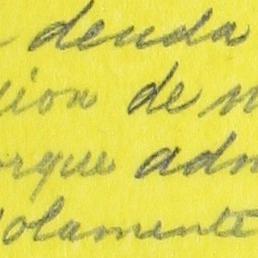 deuda
ion de
rque adm
olamente